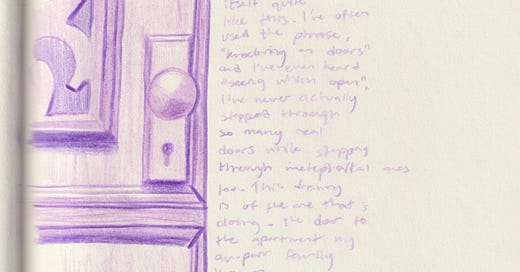 itself quite
like this. I've often
used the phrase,
"knocking on doors"
and I've even heard
"seeing which open",
I've never actually
stepped through
so many real
doors while stepping
through metaphorical ones
too. This drawing
is of the one that's
closing - the door to
the apartment my
au-pair family